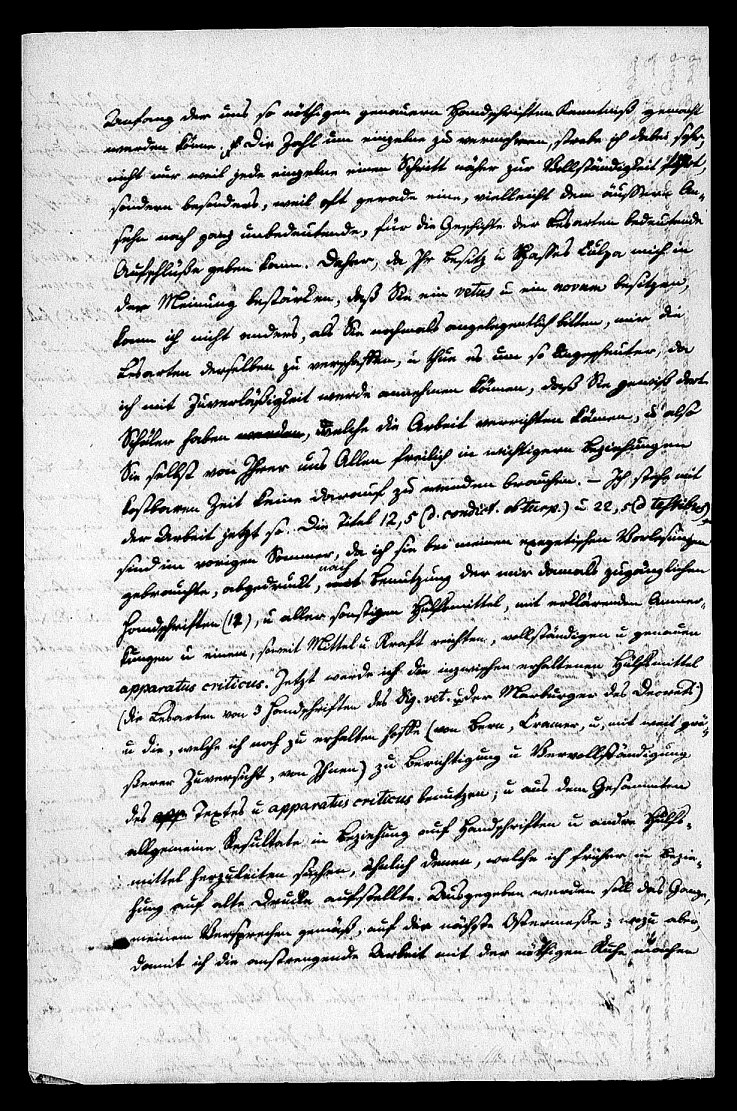 Anfang der uns so nöthigen genauern Handschriften Kenntniß gemacht
werden könne. Die Zahl um einzelne zu vermehren, strebe ich dabei sehr,
nicht nur weil jede einzelne einen Schritt näher zur Vollständigkeit führt,
sondern besonders, weil oft gerade eine, vielleicht dem äußern An-
sehn nach ganz unbedeutende, für die Geschichte der Lesarten bedeutende
Aufschlüße geben kann. Daher, da Ihr Besitz u Culpa mich in
der Meinung bestärken, daß Sie ein vetus u ein novum besitzen,
kann ich nicht anders, als Sie nochmals angelegentlich bitten, mir die
Lesarten derselben zu verschaffen, u thue es um so ungescheuter, da
ich mit Zuverläßigkeit werde annehmen können, daß Sie gewiß dort
Schüler haben werden, welche die Arbeit verrichten können, u also
Sie selbst von Ihrer uns Allen freilich in wichtigern Beziehungen
kostbaren Zeit keine darauf zu wenden brauchen. – Ich stehe mit
der Arbeit jetzt so. Die Titel 12, 5 (d. condict. ob turp.) u 22, 5 (d testibus)
sind im vorigen Sommer, da ich sie bei meinen exegetischen Vorlesungen
gebrauchte, abgedruckt, nach Benutzung der mir damals zugänglichen
Handschriften (12), u aller sonstigen Hülfsmittel, mit erklärenden Anmer-
kungen u einem, soweit Mittel u Kraft reichten, vollständigen u genauen
apparatus criticus. Jetzt werde ich die inzwischen erhaltenen Hülfsmittel
(die Lesarten von 3 Handschriften des Dig. vet. u der Marburger des Decrets)
u die, welche ich noch zu erhalten hoffe (von Bern, Cramer, u, mit weit grö-
ßerer Zuversicht, von Ihnen) zu Berichtigung u Vervollständigung
des Textes u apparatus criticus benutzen; u aus dem Gesammten
allgemeine Resultate in Beziehung auf Handschriften u andre Hülfs-
mittel herzuleiten suchen, ähnlich denen, welche ich früher in Bezie-
hung auf alte Drucke aufstellte. Ausgegeben werden soll das Ganze,
meinem Versprechen gemäß, auf die nächste Ostermesse; wozu aber,
damit ich die anstrengende Arbeit mit der nöthigen Ruhe machen